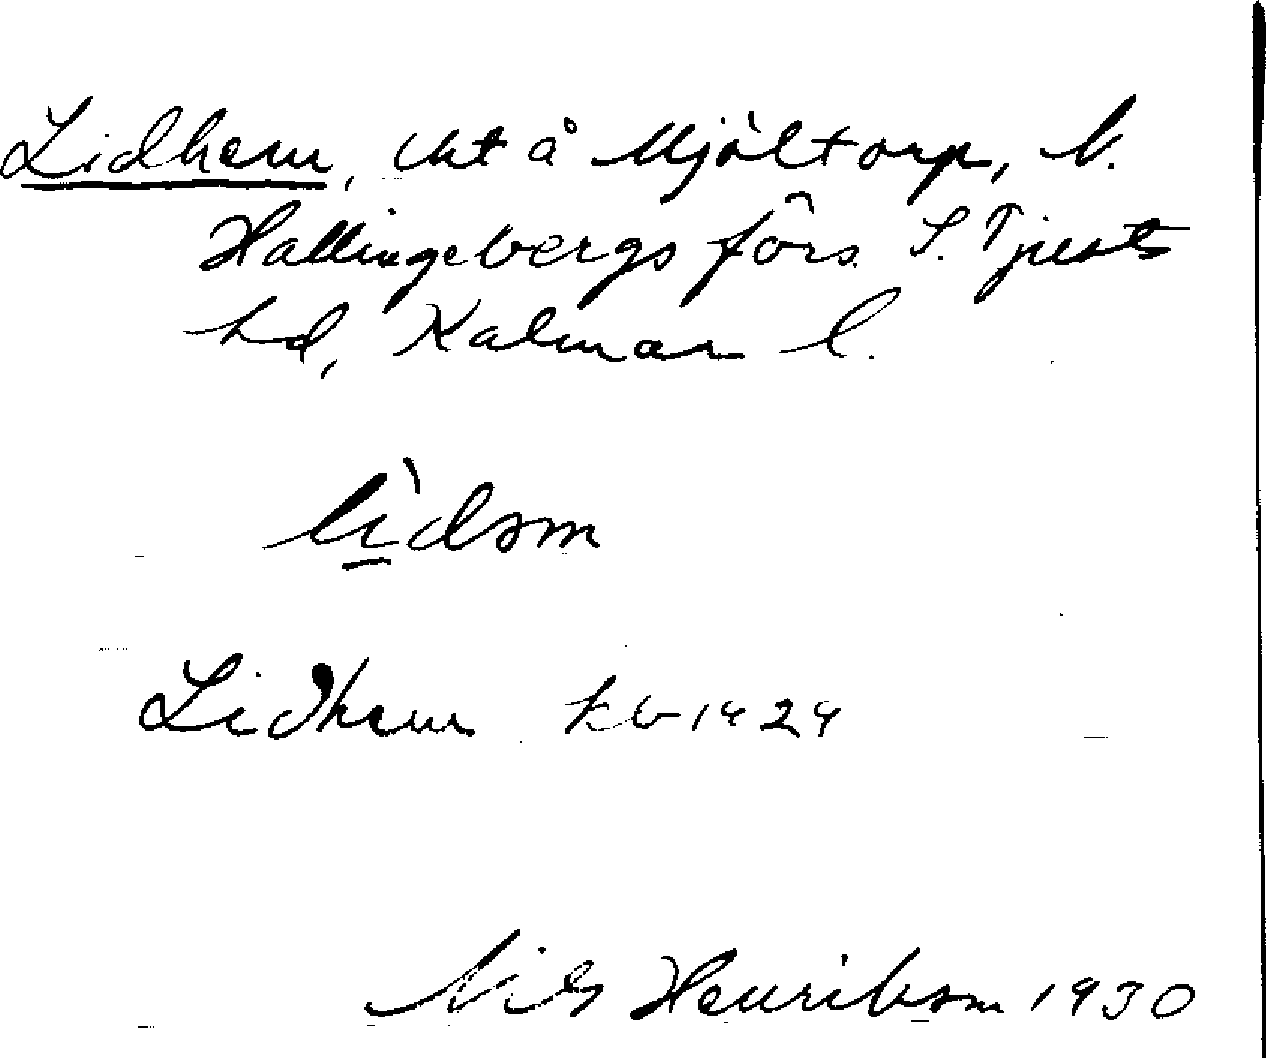 Lidhem, tkt å Mjöltorp, N.
Hallingebergs förs. S. Tjusts
hd, Kalmar l.
lìdəm
Lidhem kb 1924
Nils Henrikson 1930